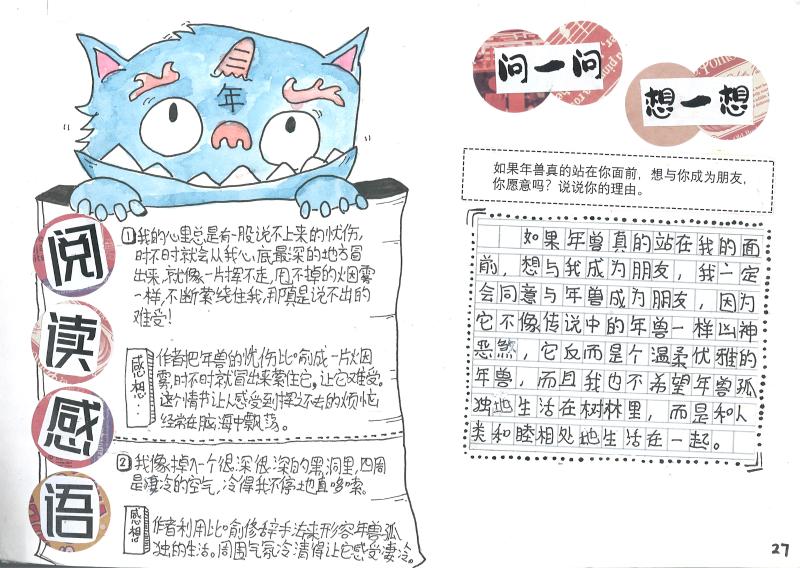 年
阅
读
感
语
①我的心里总是有一股说不上来的忧伤,
时不时就会从我心底最深的地方冒
出来,就像一片挥不走,甩不掉的烟雾
一样,不断萦绕住我,那真是说不出的
难受!
感想:
作者把年兽的忧伤比喻成一片烟
雾,时不时就冒出来萦住它,让它难受。
这个情节让人感受到挥之不去的烦恼
经常在脑海中飘荡。
②我像掉入一个很深很深的黑洞里,四周
是凄冷的空气,冷得我不停地直哆嗦。
感想:
作者利用比喻修辞手法来形容年兽孤
独的生活。周围气氛冷清得让它感受凄冷。
问一问
想一想
如果年兽真的站在你面前,想与你成为朋友,
你愿意吗?说说你的理由。
如果年兽真的站在我的面
前,想与我成为朋友,我一定
会同意与年兽成为朋友,因为
它不像传说中的年兽一样凶神
恶煞,它反而是个温柔优雅的
年兽,而且我也不希望年兽孤
独地生活在树林里,而是和人
类和睦相处地生活在一起。
27